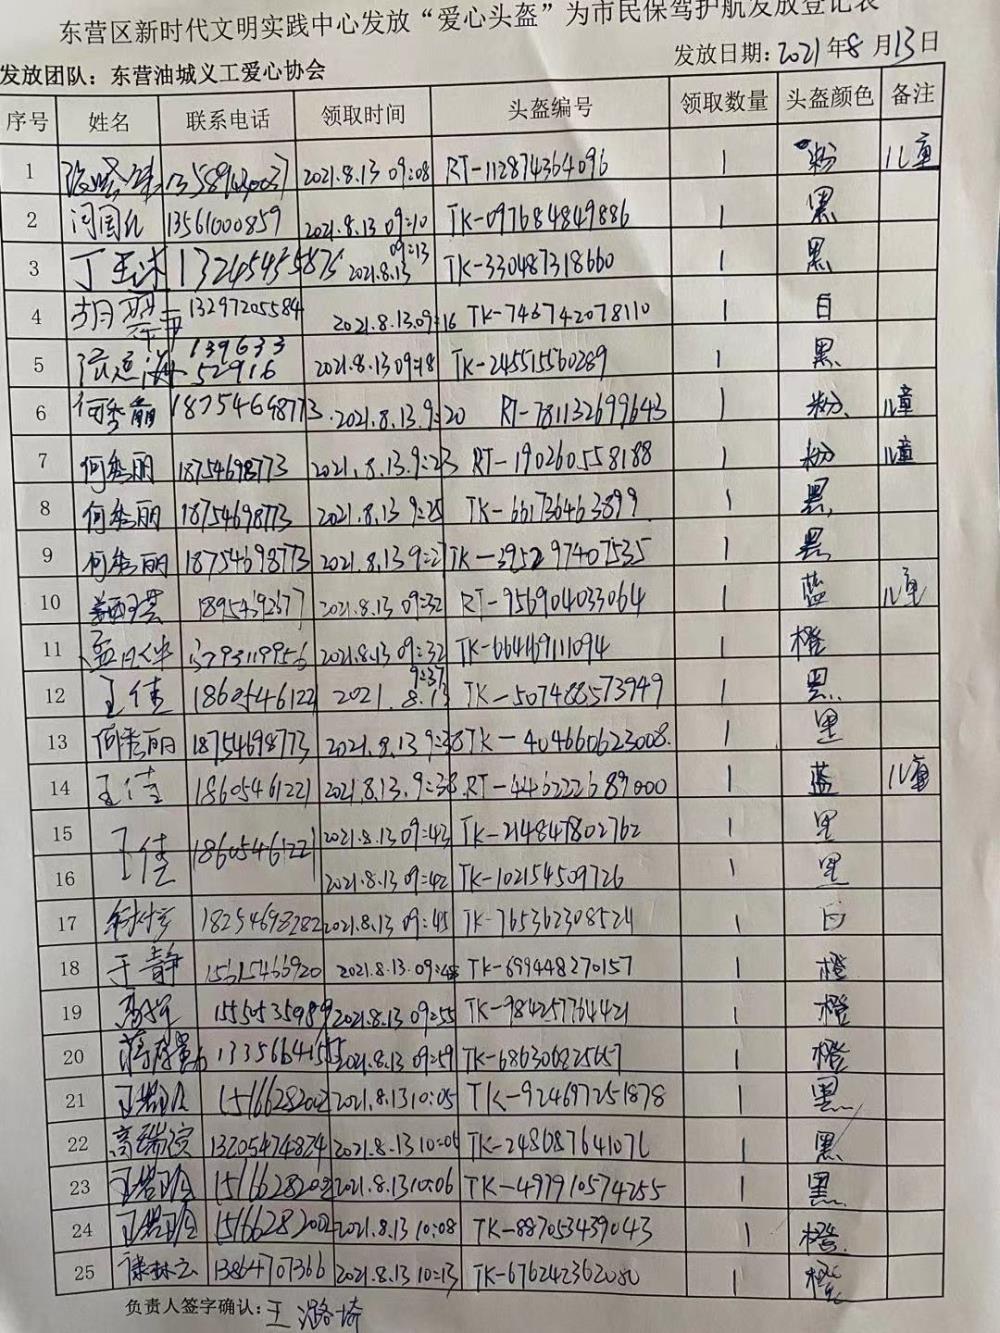 东营区新时代文明实践中心发放“爱心头盔”为市民保驾护航发放登记表
发放日期：2021年8月13日
发放团队：东营油城义工爱心协会
序号 姓名 联系电话 领取时间 头盔编号 领取数量 头盔颜色 备注
1 2021.8.13 09:08 RT-112874364096 1 粉 儿童
2 闫国礼 13561000859 2021.8.13 09:10 TK-097684849886 1 黑
3 丁玉冰 13245455875 2021.8.13 09:13 TK-330487318660 1 黑
4 13297205584 2021.8.13.09:16 TK-746742078110 1 白
5 13963352916 2021.8.13 09:18 TK-245515560289 1 黑
6 何秀丽 18754698773 2021.8.13.9:20 RT-781132699643 1 粉 儿童
7 何秀丽 18754698773 2021.8.13.9:23 RT-190260558188 1 粉 儿童
8 何秀丽 18754698773 2021.8.13 9:25 TK-661736463899 1 黑
9 何秀丽 18754698773 2021.8.13 9:27 TK-395297407535 1 黑
10 2021.8.13 09:32 RT-956904033064 1 蓝 儿童
11 2021.8.13 09:32 TK-664469111094 1 橙
12 王佳 18605461221 2021.8.13 9:37 TK-507488573949 1 黑
13 何秀丽 18754698773 2021.8.13 9:38 TK-404660623008 1 黑
14 王佳 18605461221 2021.8.13.9:38 RT-446222689000 1 蓝 儿童
15 王佳 18605461221 2021.8.13 09:43 TK-214847802762 1 黑
16 2021.8.13 09:42 TK-102154509726 1 黑
17 18254698282 2021.8.13 09:45 TK-765362308524 1 白
18 于静 15615466920 2021.8.13.09:48 TK-699448270157 1 橙
19 15550535989 2021.8.13 09:55 TK-984257764421 1 橙
20 2021.8.13 09:59 1 橙
21 15166282002 2021.8.13 10:05 TK-924697251878 1 黑
22 高瑞滨 13205474824 2021.8.13 10:06 1 黑
23 15166282002 2021.8.13 10:06 TK-497910574255 1 黑
24 15166282002 2021.8.13 10:08 TK-887053439043 1 橙
25 13864707366 2021.8.13 10:13 TK-676242362080 1 橙
负责人签字确认：王潞琦